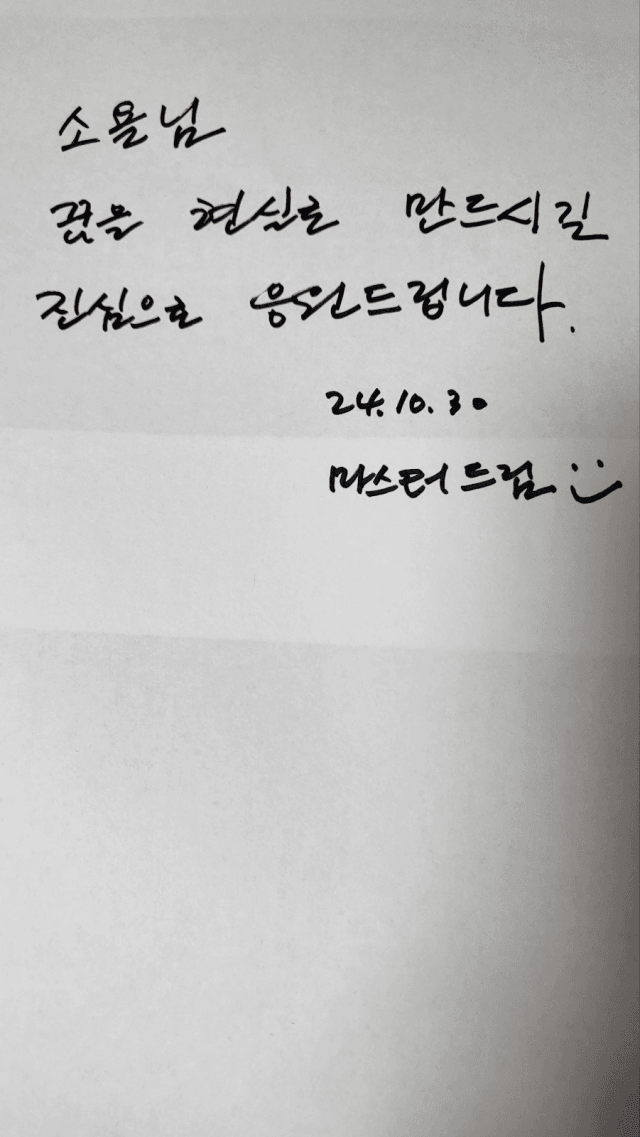 소율님
꿈을 현실로 만드시길
진심으로 응원드립니다.
24.10.30
마스터 드림 :)